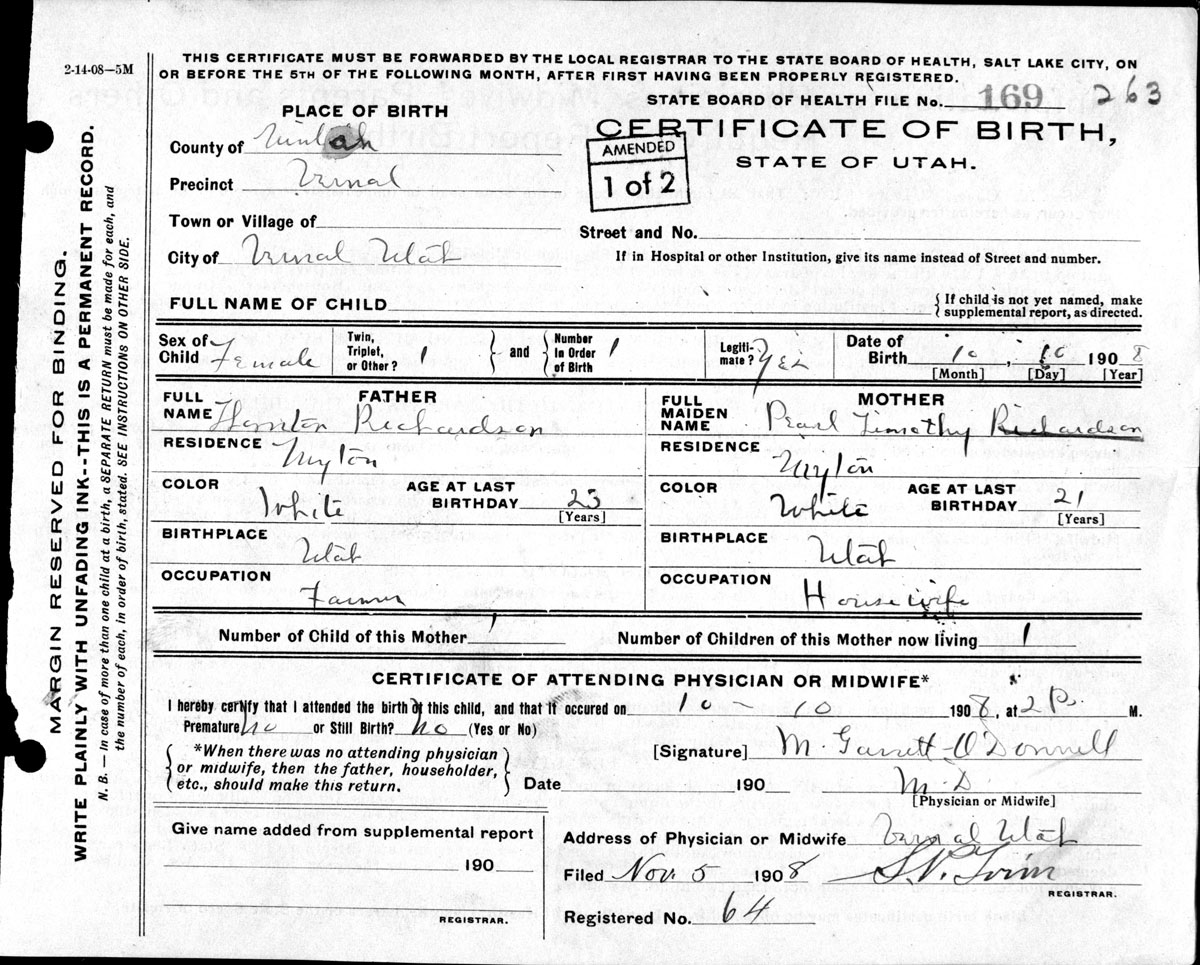 2-14-08—5M
THIS CERTIFICATE MUST BE FORWARDED BY THE LOCAL REGISTRAR TO THE STATE BOARD OF HEALTH, SALT LAKE CITY, ON
OR BEFORE THE 5TH OF THE FOLLOWING MONTH, AFTER FIRST HAVING BEEN PROPERLY REGISTERED.
STATE BOARD OF HEALTH FILE No. 169 263
PLACE OF BIRTH
CERTIFICATE OF BIRTH,
STATE OF UTAH.
AMENDED
1 of 2
County of Uintah
Precinct Vernal
Town or Village of
Street and No.
City of Vernal Utah
If in Hospital or other Institution, give its name instead of Street and number.
FULL NAME OF CHILD
{ If child is not yet named, make
supplemental report, as directed.
Sex of Child Female
Twin, Triplet, or Other? 1 } and { Number In Order of Birth 1
Legiti-mate? Yes
Date of Birth 10, 10 1908
[Month] [Day] [Year]
FATHER
FULL NAME Thornton Richardson
RESIDENCE Myton
COLOR White AGE AT LAST BIRTHDAY 23
[Years]
BIRTHPLACE Utah
OCCUPATION Farmer
MOTHER
FULL MAIDEN NAME Pearl Timothy Richardson
RESIDENCE Myton
COLOR White AGE AT LAST BIRTHDAY 21
[Years]
BIRTHPLACE Utah
OCCUPATION Housewife
Number of Child of this Mother 1 Number of Children of this Mother now living 1
CERTIFICATE OF ATTENDING PHYSICIAN OR MIDWIFE*
I hereby certify that I attended the birth of this child, and that it occured on 10 - 10 1908, at 2 P. M.
Premature No or Still Birth? No (Yes or No)
{ *When there was no attending physician
or midwife, then the father, householder,
etc., should make this return. }
[Signature] M. Garrett-O'Donnell
Date 190 M.D.
[Physician or Midwife]
Give name added from supplemental report
190
REGISTRAR.
Address of Physician or Midwife Vernal Utah
Filed Nov 5 1908
REGISTRAR.
Registered No. 64
MARGIN RESERVED FOR BINDING.
WRITE PLAINLY WITH UNFADING INK--THIS IS A PERMANENT RECORD.
N. B. — In case of more than one child at a birth, a SEPARATE RETURN must be made for each, and
the number of each, in order of birth, stated. SEE INSTRUCTIONS ON OTHER SIDE.